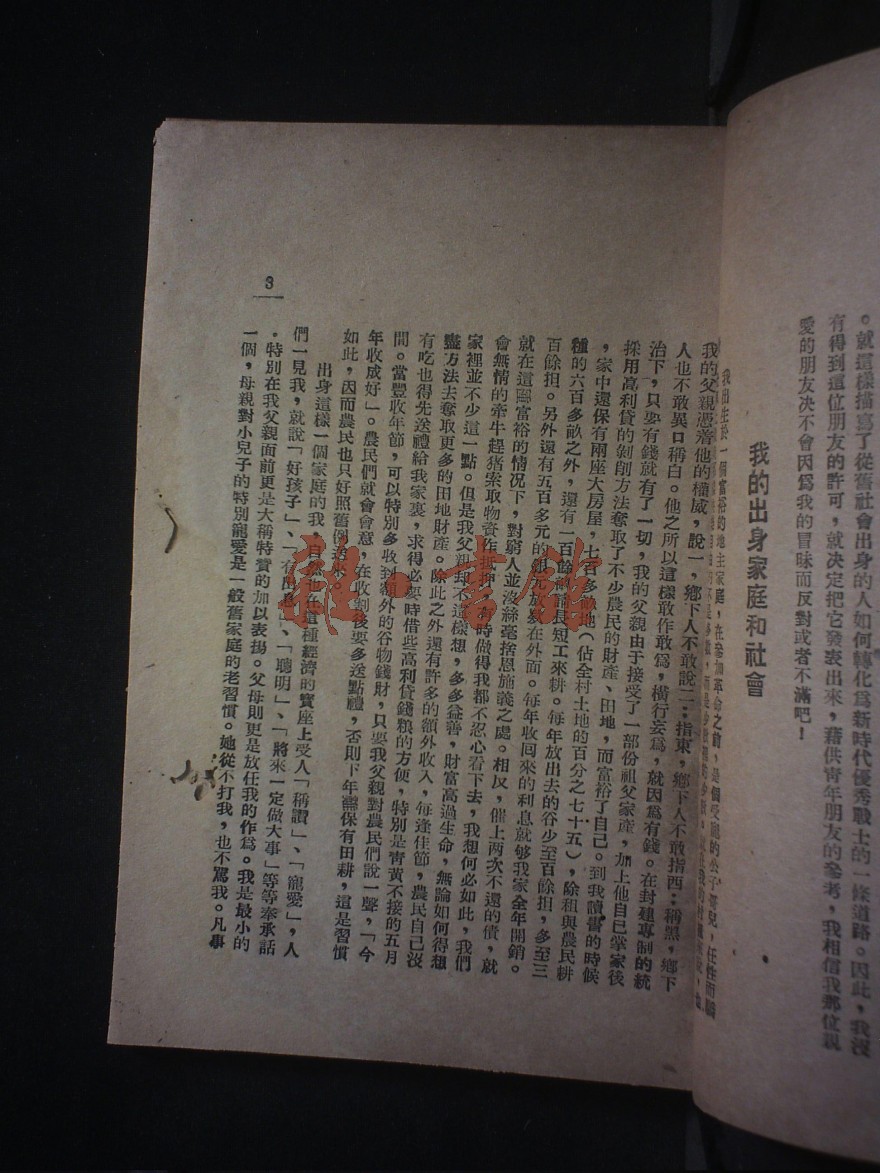 。就這樣描寫了從舊社會出身的人如何轉化爲新時代優秀戰士的一條道路。因此，我沒
有得到這位朋友的許可，就决定把它發表出來，藉供青年朋友的參考，我相信我那位親
愛的朋友决不會因爲我的冒昧而反對或者不滿吧！
我的出身家庭和社會
我出生於一個富裕的地主家庭，在參加革命之前，是個受寵的公子哥兒，任性而驕
我的父親憑着他的權威，說一，鄉下人不敢說二；指東，鄉下人不敢指西；稱黑，鄉下
人也不敢異口稱白。他之所以這樣敢作敢爲，橫行妄爲，就因爲有錢。在封建專制的統
治下，只要有錢就有了一切，我的父親由于接受了一部份祖父家產，加上他自己掌家後
採用高利貸的剝削方法奪取了不少農民的財產、田地，而富裕了自己。到我讀書的時候
，家中還保有兩座大房屋，七百多畝地（佔全村土地的百分之七十五），除租與農民耕
種的六百多畝之外，還有一百餘畝請長短工來耕。每年放出去的谷少至百餘担，多至三
百餘担。另外還有五百多元的銀元放癸在外面。每年收回來的利息就够我家全年開銷。
就在這闊富裕的情况下，對窮人並沒絲毫捨恩施義之處。相反，催上两次不還的債，就
會無情的牽牛趕猪索取物資作抵押，有時做得我都不忍心看下去，我想何必如此，我們
家裡並不少這一點。但是我父親却不這樣想，多多益善，財富高過生命，無論如何得想
盡方法去奪取更多的田地財產。除此之外還有許多的額外收入，每逢佳節，農民自己沒
有吃也得先送禮給我家裏，求得必要時借些高利貸錢粮的方便，特別是青黃不接的五月
間。當豐收年節，可以特別多收到額外的谷物錢財，只要我父親對農民們說一聲，「今
年收成好」。農民們就會會意，在收割後要多送點禮，否則下年難保有田耕，這是習慣
如此，因而農民也只好照舊例送來。
出身這樣一個家庭的我，自然也在這種經濟的寶座上受人「稱讚」、「寵愛」，人
們一見我，就說「好孩子」、「有出息」、「聰明」、「將來一定做大事」等等奉承話
．特別在我父親面前更是大稱特贊的加以表揚。父母則更是放任我的作爲。我是最小的
一個，母親對小兒子的特別寵愛是一般舊家庭的老習慣。她從不打我，也不罵我。凡事
3
雜·書館